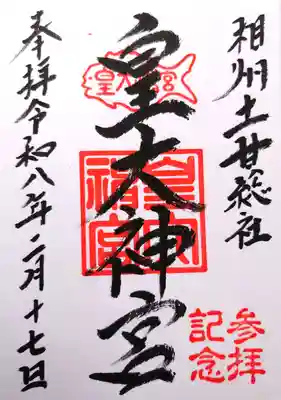 相州土甘総社
参拝
記念
皇大神宮
皇大神宮
奉拝令和八年二月十七日